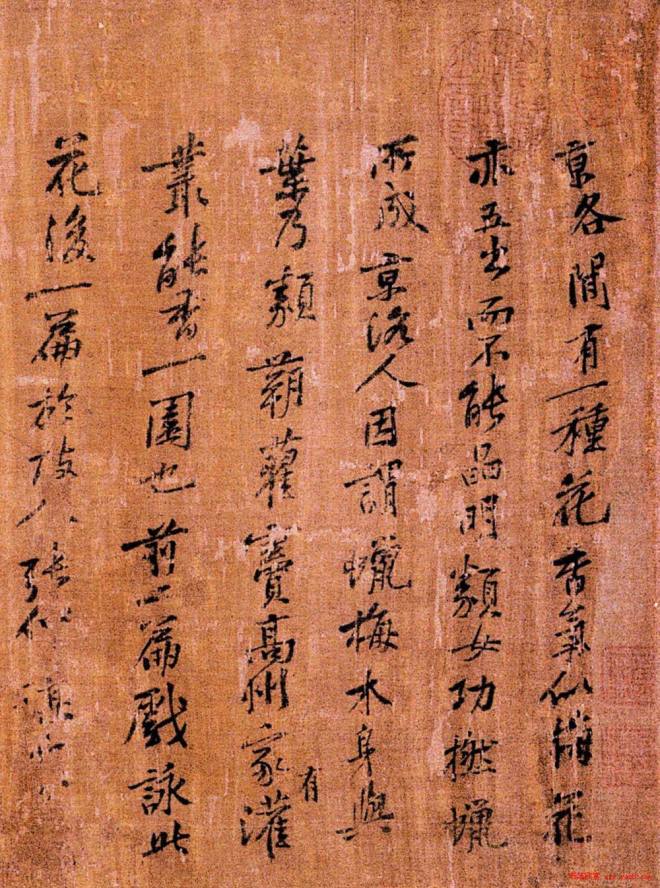 京各間有一種花香氣似梅花
亦五出而不能晶明類女功撚蠟
所成京洛人因謂蠟梅木身與
葉乃類蒴藋竇高州家有灌
叢能香一園也前篇戲詠此
花後一篇於故人張仲